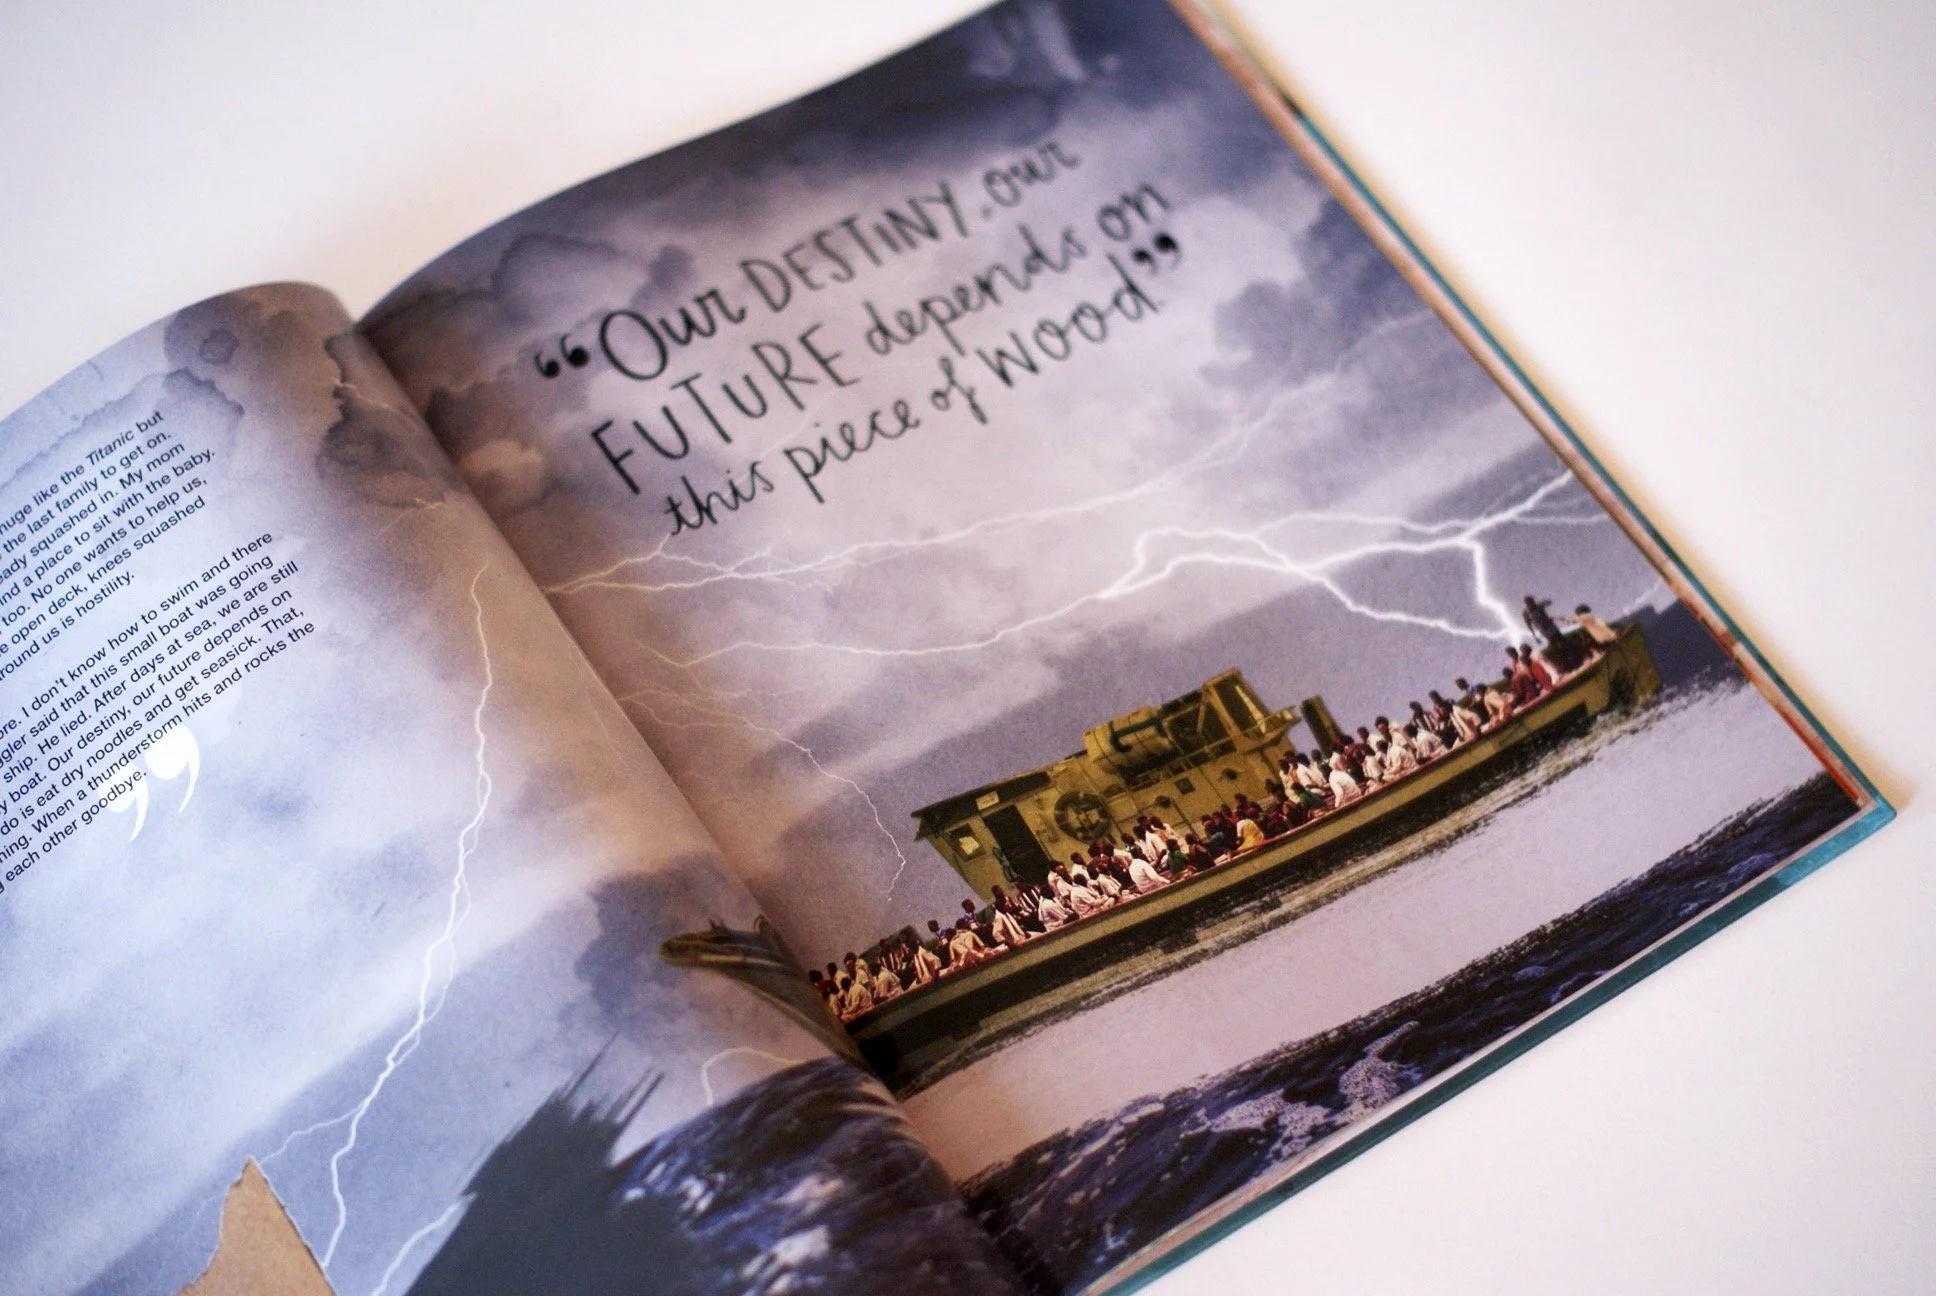 huge like the Titanic but
the last family to get on.
squashed in. My mom
a place to sit with the baby.
too. No one wants to help us,
open deck, knees squashed
us is hostility.
I don't know how to swim and there
said that this small boat was going
ship. He lied. After days at sea, we are still
boat. Our destiny, our future depends on
do is eat dry noodles and get seasick. That,
When a thunderstorm hits and rocks the
each other goodbye.
”
“Our DESTINY, our
FUTURE depends on
this piece of wood.”